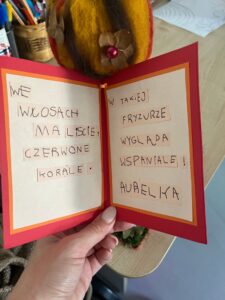 WE
WŁOSACH
MA LIŚCIE,
CZERWONE
KORALE.
W TAKIEJ
FRYZURZE
WYGLĄDA
WSPANIALE!
AURELKA